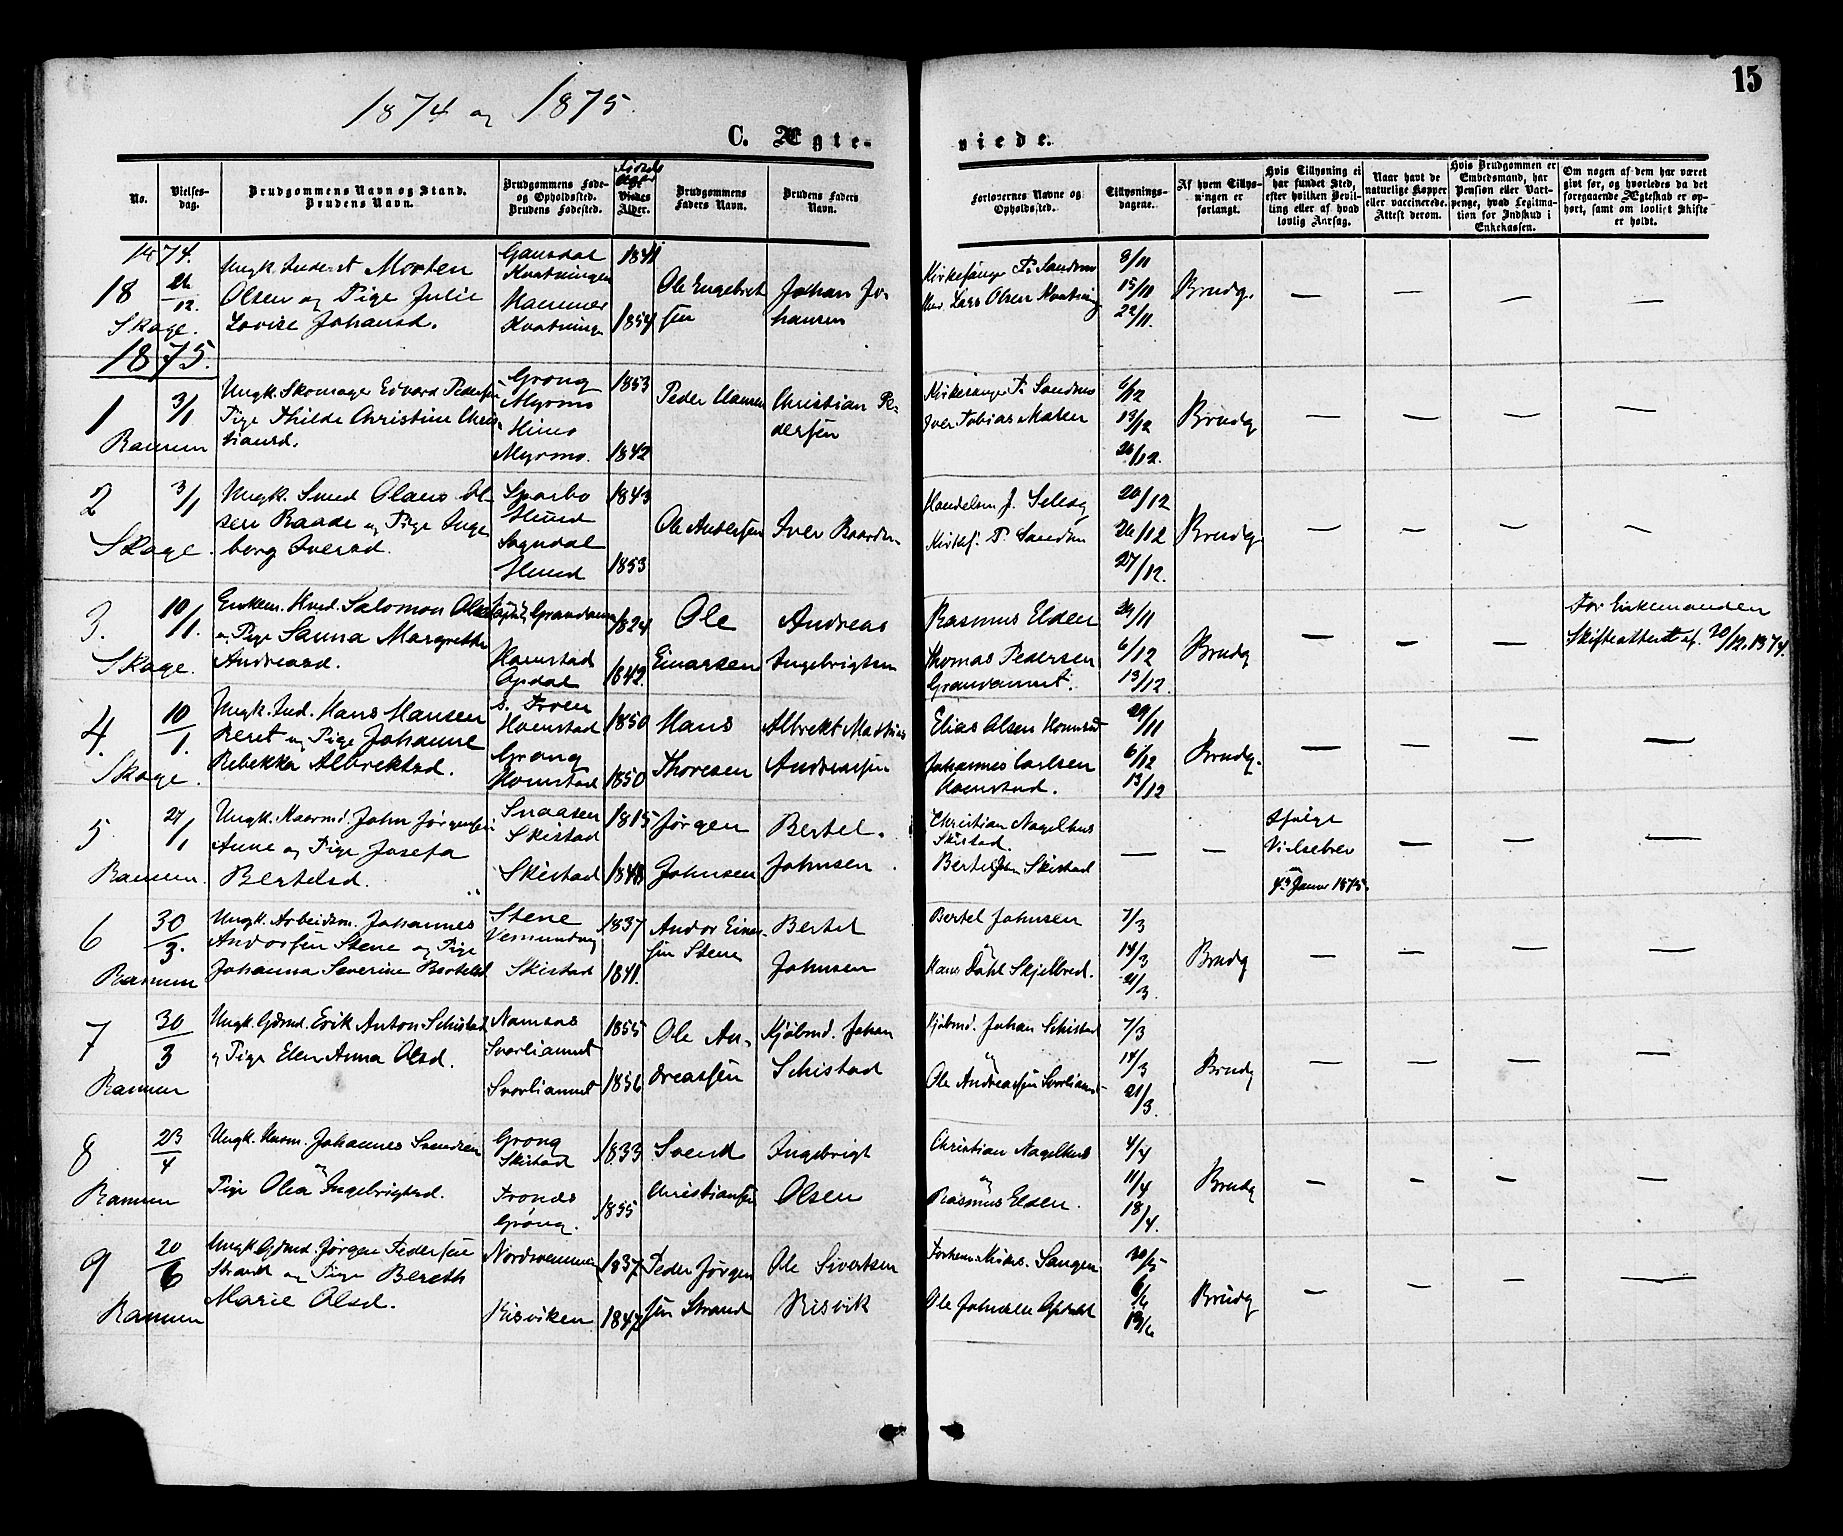 15
1874 og 1875.
C. Ægte-
viede.
No.
Vielses-
dag.
Brudgommens Navn og Stand.
Brudens Navn.
Brudgommens Føde-
og Opholdssted.
Brudens Fødested.
Alder.
Brudgommens
Faders Navn.
Brudens Faders
Navn.
Forlovernes Navne og
Opholdssted.
Tillysnings-
dagene.
Af hvem Tillys-
ningen er
forlangt.
Hvis Tillysning ei
har fundet Sted,
efter hvilken Bevil-
ling eller af hvad
lovlig Aarsag.
Naar havt de
naturlige Kopper
eller vaccinerede.
Attest derom.
Hvis Brudgommen er
Embedsmand, har
Pension eller Vart-
penge, hvad Legitima-
tion for Indskud i
Enkekassen.
Om nogen af dem har været
givt før, og hvorledes da det
foregaaende Ægteskab er op-
hørt, samt om lovligt Skifte
er holdt.
1874.
18
Skage.
Ungk. Inderst Morten
Olsen og Pige Julie
Lovise Johansd.
Gansdal
Kvatningen
Hammer
Kvatninge
1841
1854
Ole Engebret
sen
Johan Jo-
hansen
Kirkesanger P. Sandnes
Lars Olsen Kvatning
8/11
15/11
22/11.
Brudg.
1875.
1
3/1
Ranum
Ungk. Skomager Edvard Pedersen
Pige Thilde Christine Chris-
tiansd.
Grong
Myrmo
Himo
Myrmo.
1853
1842
Peder Clausen
Christian Pe-
dersen
Kirkesanger P. Sandnes
Iver Tobias Moster
6/12
13/12
20/12.
Brudg
2
3/1
Skage.
Ungk. Smed Olaus Ol-
sen Raade og Pige Inge
borg Iversd.
Sparbo
Hund
Sogndal
Hund
1843
1853
Ole Andersen
Iver Baardsen
Handelsm. J. Selesg
Kirkes. P. Sandnes
20/12
26/12
27/12.
Brudg.
3.
10/1.
Skage.
Enkem. Husd. Salomon Olsen
og Pige Sanna Margrethe
Andreasd.
Grandamo
Homstad
Opdal
1824
1842.
Ole
Einarsen
Andreas
Ingebrigtsen
Rasmus Elden
Thomas Pedersen
Granvannet.
29/11
6/12
13/12.
Brudg
For Enkemanden
Skifteattest af 20/12.1874.
4.
10/1.
Skage.
Ungk. Ind. Hans Hansen
Leret og Pige Johanne
Rebekka Albrektsd.
S. Froen
Homstad
Grong
Homstad
1850
1850
Hans
Thoresen
Albrekt Mathias
Andreassen
Elias Olsen Homstad
Johannes Carlsen
Homstad.
29/11
6/12
13/12
Brudg.
5
Ranum.
Ungk. Gaardmd. John Jørgensen
Aune og Pige Josefa
Bertelsd.
Snaasen
Skistad
Skistad
1815
1848
Jørgen
Johnsen
Bertel
Johnsen.
Christian Nagelhus
Skistad.
Bertel John Skistad
Ifølge
Vielsebrev
4de Januar 1875.
6
30/3.
Ranum
Ungk. Arbeidsm. Johannes
Andorsen Stene og Pige
Johanna Severine Bertelsd
Stene
Vemundvig
Skistad
1837
1841.
Andor Einar-
sen Stene
Bertel
Johnsen
Bertel Johnsen
Hans Dahl Skjelbred.
7/3
14/3
21/3.
Brudg
7
30/3
Ranum
Ungk. Gdmd. Erik Anton Schistad
og Pige Elen Anna Olsd.
Namsos
Svorliamnet
Svorliamnet
1855
1856
Ole An-
dreassen
Kjøbmd. Johan
Schistad
Kjøbmd. Johan Schistad
og
Ole Andreassen Svorliamnet
7/3
14/3
21/3.
Brudg
8
23/4
Ranum
Ungk. Husm. Johannes Svendsen
og
Pige Olea Ingebrigtsd.
Grong
Skistad
Trones
Grong.
1833
1855
Svend
Christiansen
Ingebrigt
Olsen
Christian Nagelhus
og
Rasmus Elden.
4/4
11/4
18/4.
Brudg
9
20/6
Ranum
Ungk. Gdmd. Jørgen Pedersen
Strand og Pige Bereth
Marie Olsd.
Nordvemmen
Risviken
1837
1847
Peder Jørgen
sen Strand
Ole Sivertsen
Risvik
Sangen
Ole Johnsen Opdal
30/5
6/6
13/6
Brudg